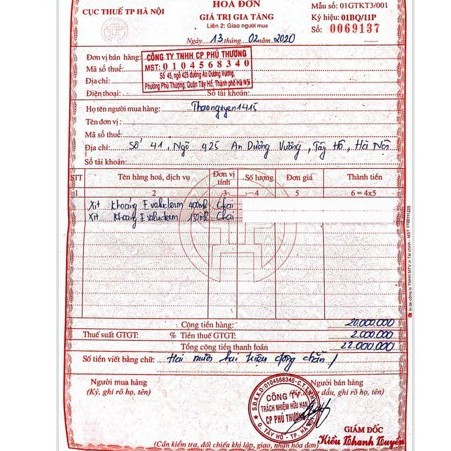 CỤC THUẾ TP HÀ NỘI
HÓA ĐƠN
GIÁ TRỊ GIA TĂNG
Liên 2: Giao người mua
Ngày 13 tháng 02 năm 2020
Mẫu số: 01GTKT3/001
Ký hiệu: 01BQ/11P
Số: 0069137
Đơn vị bán hàng:
Mã số thuế:
Địa chỉ:
Điện thoại:
Số tài khoản:
CÔNG TY TNHH CP PHÚ THƯỢNG
MST: 0104568340
Số 45, ngõ 425 đường An Dương Vương,
Phường Phú Thượng, Quận Tây Hồ, Thành phố Hà Nội
Họ tên người mua hàng: Thaonguyen1415
Tên đơn vị:
Mã số thuế:
Địa chỉ: Số 41, Ngõ 425 An Dương Vương, Tây Hồ, Hà Nội
Số tài khoản:
STT Tên hàng hoá, dịch vụ Đơn vị tính Số lượng Đơn giá Thành tiền
1 2 3 4 5 6 = 4x5
Xịt khoáng Evoluderm 400ml Chai
Xịt khoáng Evoluderm 150ml Chai
Cộng tiền hàng: 20.000.000
Thuế suất GTGT: % Tiền thuế GTGT: 2.000.000
Tổng cộng tiền thanh toán 22.000.000
Số tiền viết bằng chữ: Hai mươi hai triệu đồng chẵn /
Người mua hàng
(Ký, ghi rõ họ, tên)
Người bán hàng
CÔNG TY
TRÁCH NHIỆM HỮU HẠN
CP PHÚ THƯỢNG
Q. TÂY HỒ - TP. HÀ NỘI
GIÁM ĐỐC
Kiều Khanh Duyên
(Cần kiểm tra, đối chiếu khi lập, giao, nhận hóa đơn)